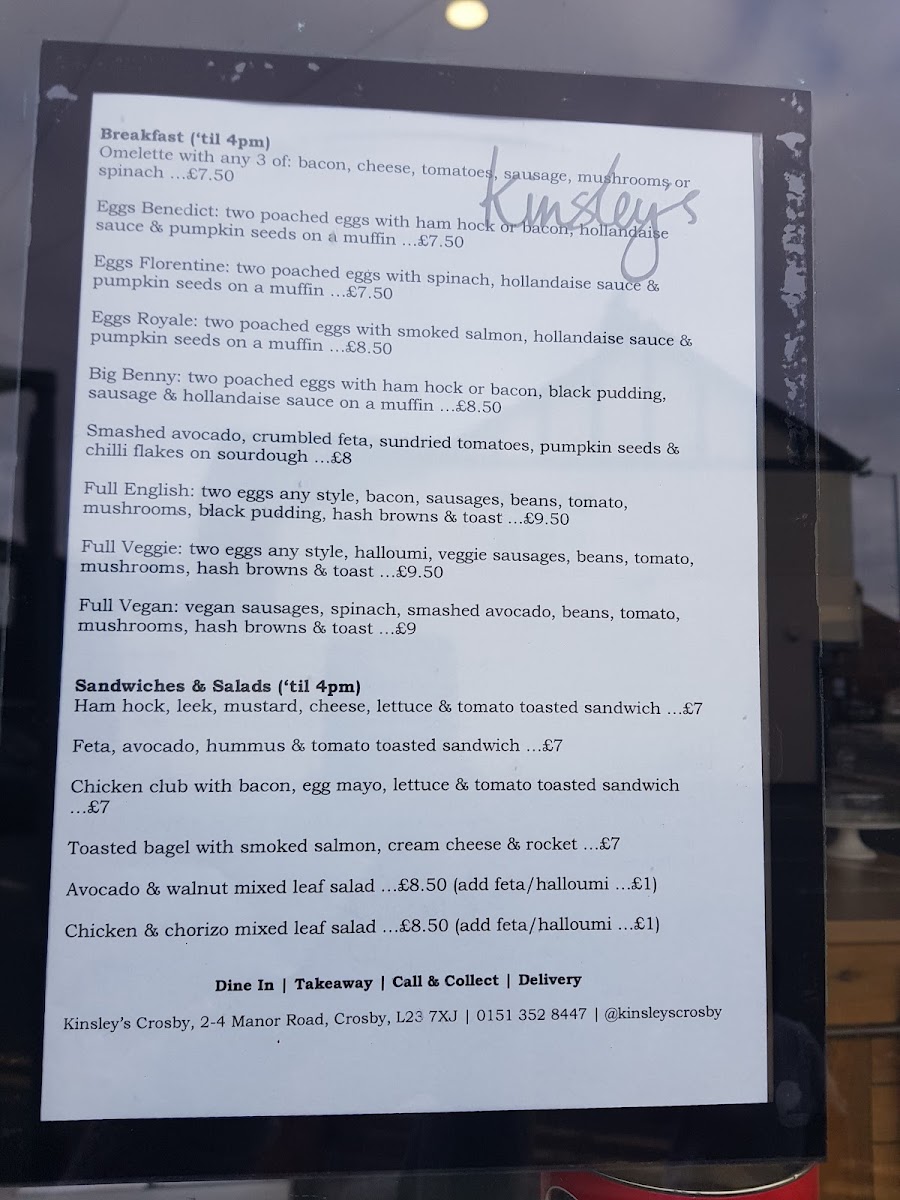 Kinsleys
Breakfast (‘til 4pm)
Omelette with any 3 of: bacon, cheese, tomatoes, sausage, mushrooms or
spinach ...£7.50
Eggs Benedict: two poached eggs with ham hock or bacon, hollandaise
sauce & pumpkin seeds on a muffin ...£7.50
Eggs Florentine: two poached eggs with spinach, hollandaise sauce &
pumpkin seeds on a muffin ...£7.50
Eggs Royale: two poached eggs with smoked salmon, hollandaise sauce &
pumpkin seeds on a muffin ...£8.50
Big Benny: two poached eggs with ham hock or bacon, black pudding,
sausage & hollandaise sauce on a muffin ...£8.50
Smashed avocado, crumbled feta, sundried tomatoes, pumpkin seeds &
chilli flakes on sourdough ...£8
Full English: two eggs any style, bacon, sausages, beans, tomato,
mushrooms, black pudding, hash browns & toast ...£9.50
Full Veggie: two eggs any style, halloumi, veggie sausages, beans, tomato,
mushrooms, hash browns & toast ...£9.50
Full Vegan: vegan sausages, spinach, smashed avocado, beans, tomato,
mushrooms, hash browns & toast ...£9
Sandwiches & Salads (‘til 4pm)
Ham hock, leek, mustard, cheese, lettuce & tomato toasted sandwich ...£7
Feta, avocado, hummus & tomato toasted sandwich ...£7
Chicken club with bacon, egg mayo, lettuce & tomato toasted sandwich
...£7
Toasted bagel with smoked salmon, cream cheese & rocket ...£7
Avocado & walnut mixed leaf salad ...£8.50 (add feta/halloumi ...£1)
Chicken & chorizo mixed leaf salad ...£8.50 (add feta/halloumi ...£1)
Dine In | Takeaway | Call & Collect | Delivery
Kinsley's Crosby, 2-4 Manor Road, Crosby, L23 7XJ | 0151 352 8447 | @kinsleyscrosby